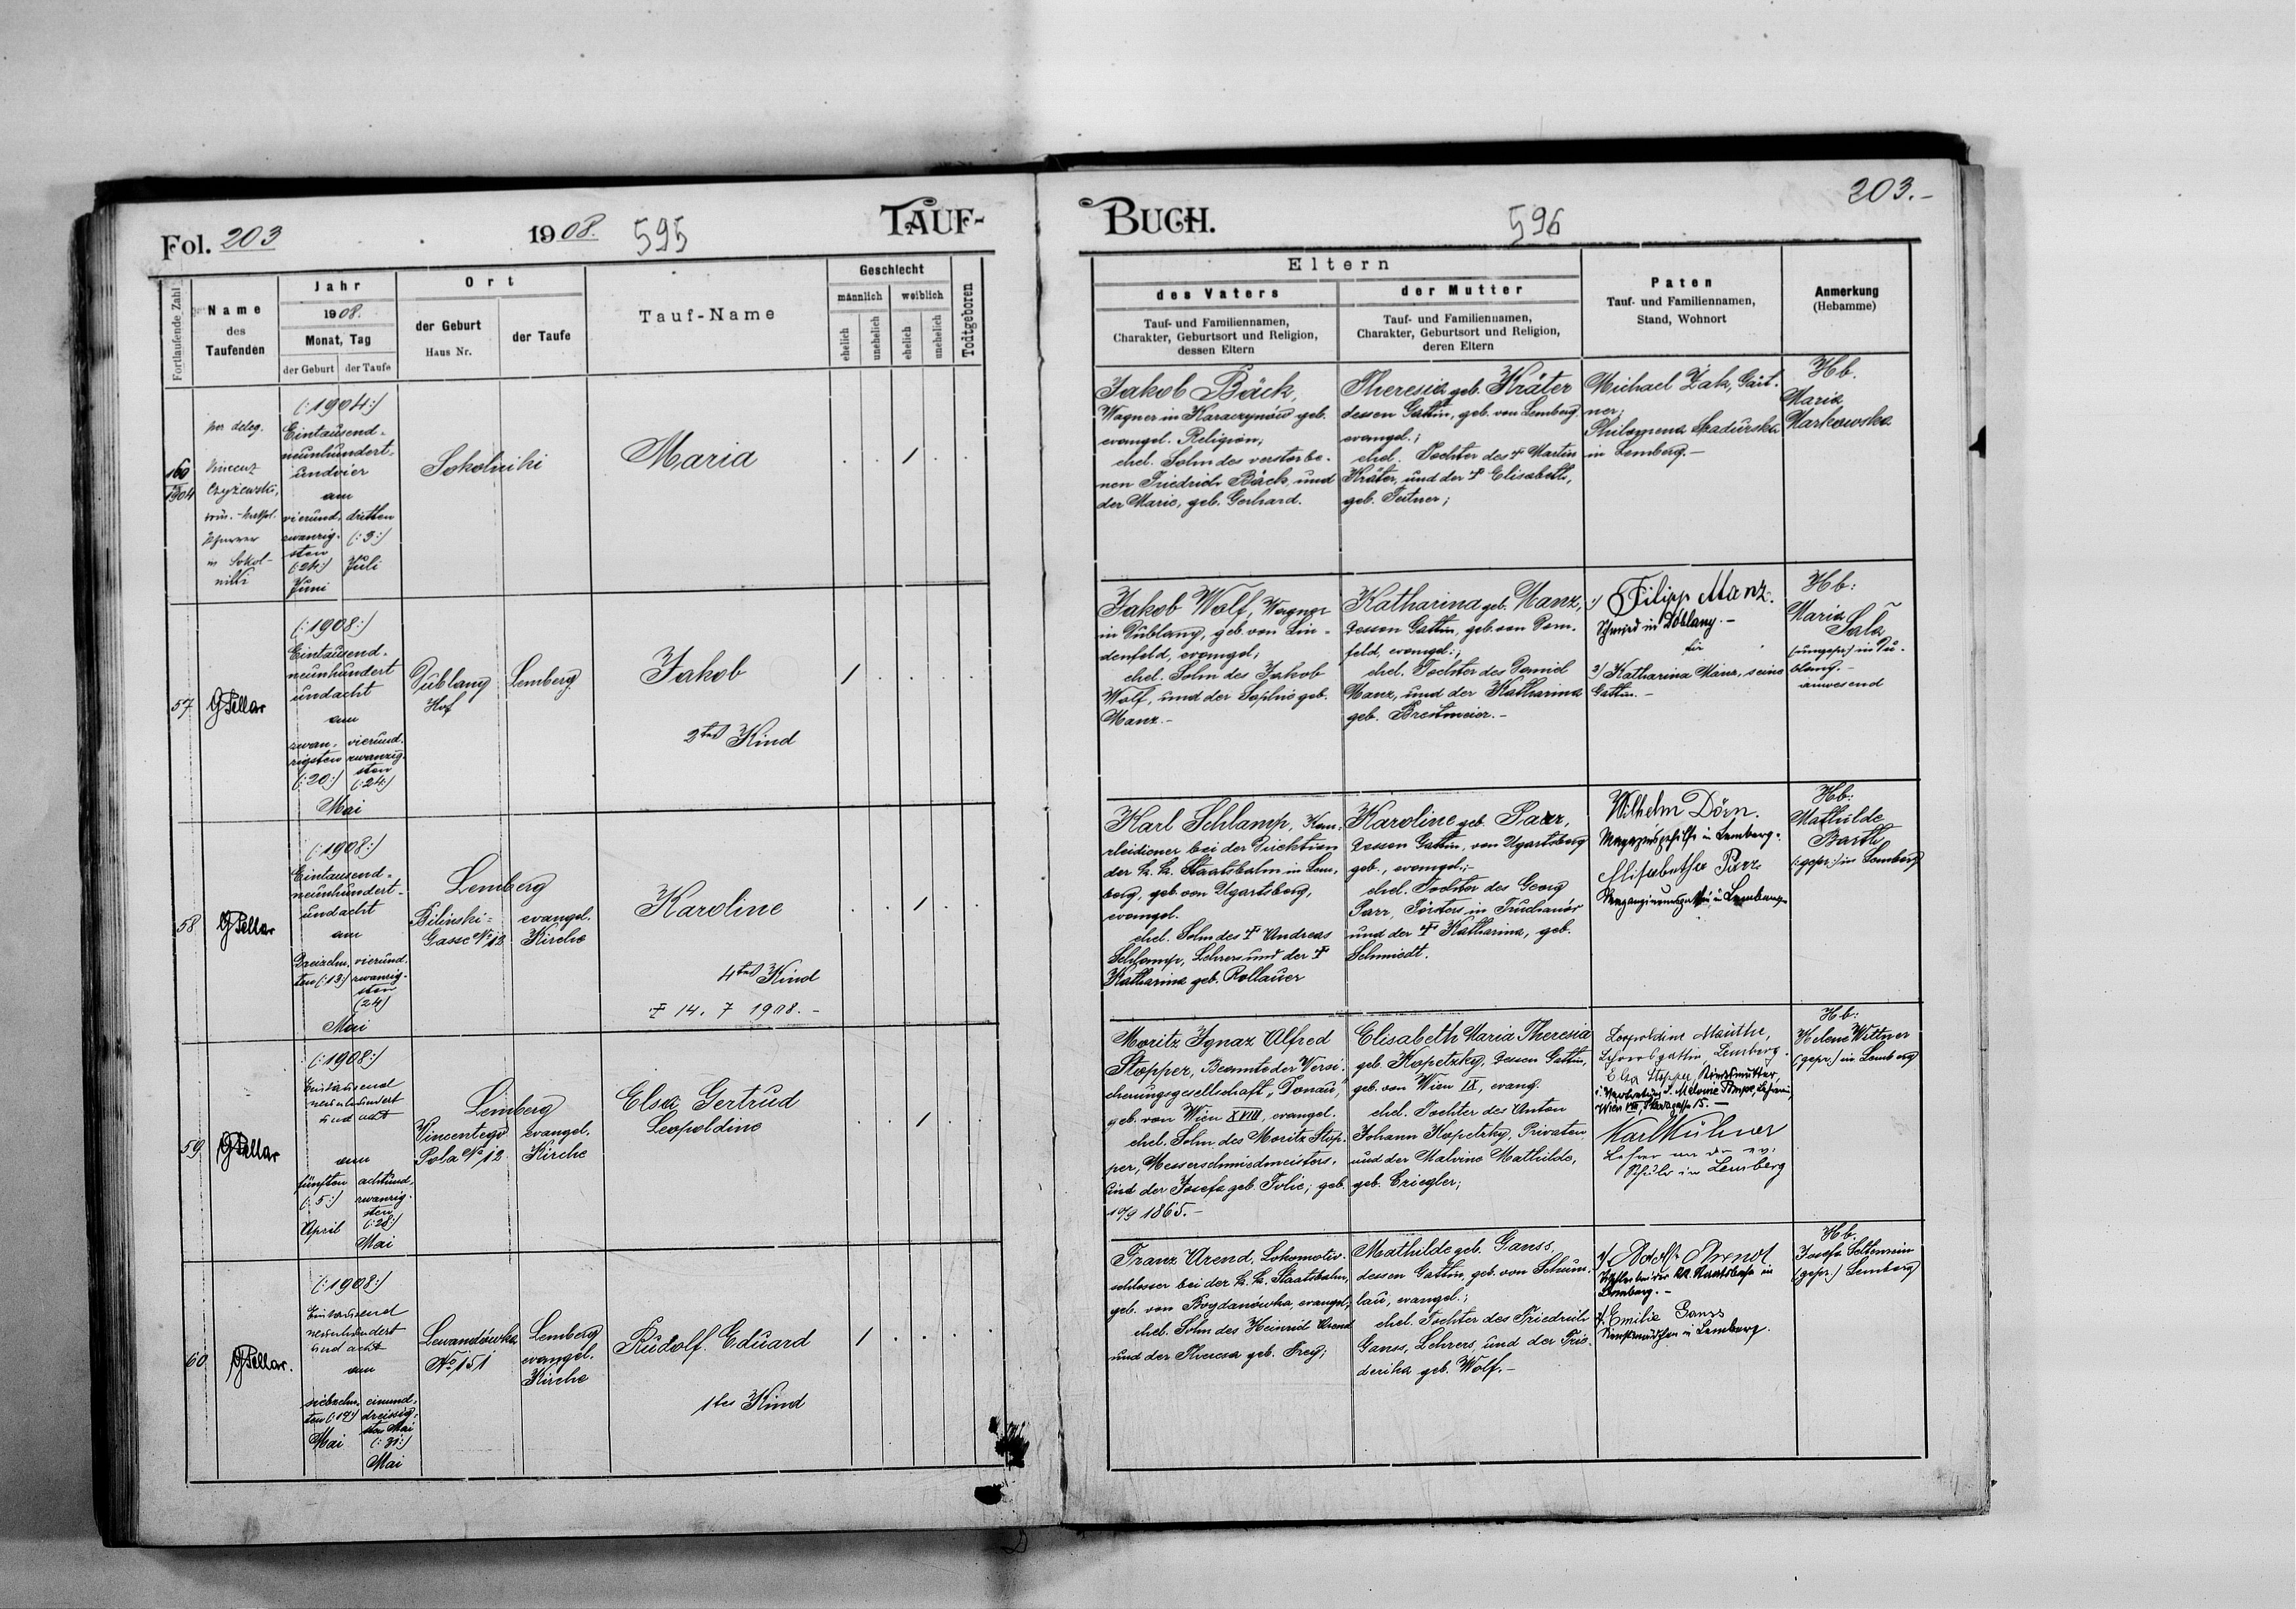 Fol. 203
1908. 595
TAUF-
Fortlaufende Zahl
Name
des
Taufenden
Jahr
1908.
Monat, Tag
der Geburt
der Taufe
Ort
der Geburt
Haus Nr.
der Taufe
Tauf-Name
Geschlecht
männlich
weiblich
ehelich
unehelich
ehelich
unehelich
Todtgeboren
160
1904
per deleg.
Vincenz
Czyżewski,
Pfarrer
in Sokol-
niki
(:1904:)
Eintausend-
neunhundert-
undvier
am
vierund-
zwanzig-
sten
(:24:)
Juni
dritten
(:3:)
Juli
Sokolniki
Maria
57
(:1908:)
Eintausend-
neunhundert
undacht
am
zwan-
zigsten
(:20:)
vierund-
zwanzig-
sten
(:24:)
Mai
Dublany
Hof
Lemberg
Jakob
2tes Kind
58
(:1908:)
Eintausend-
neunhundert-
undacht
am
Dreizehn-
ten (:13:)
vierund-
zwanzig-
sten
(24)
Mai
Lemberg
Bilinski-
Gasse No 12
evangel.
Kirche
Karoline
4tes Kind
14. 7 1908.-
59
(:1908:)
Eintausend
neunhundert
und acht
am
fünften
(:5:)
April
achtund-
zwanzig-
sten
(:28:)
Mai
Lemberg
Vincentego
Pola No 12
evangel.
Kirche
Elsa Gertrud
Leopoldine
60
(:1908:)
Eintausend
neunhundert
und acht
am
siebzehn-
ten (:17:)
Mai
einund-
dreissig-
sten Mai
(:31:)
Mai
Lewandówka
No 151
Lemberg
evangel.
Kirche
Rudolf Eduard
1tes Kind
BUCH.
596
203.-
Eltern
des Vaters
Tauf- und Familiennamen,
Charakter, Geburtsort und Religion,
dessen Eltern
der Mutter
Tauf- und Familiennamen,
Charakter, Geburtsort und Religion,
deren Eltern
Paten
Tauf- und Familiennamen,
Stand, Wohnort
Anmerkung
(Hebamme)
Jakob Bäck,
Wagner in Karaczynów geb.
evangel. Religion;
ehel. Sohn des verstorbe-
nen Friedrich Bäck und
der Marie, geb. Gerhard.
Theresia geb. Kräter
dessen Gattin, geb. von Lemberg
evangel.;
ehel. Tochter des † Martin
Kräter, und der † Elisabeth,
geb.
Michael Żak, Gärt-
ner;
Philomena
in Lemberg.-
Hb.
Maria
Markowska
Jakob Wolf, Wagner
in Dublany, geb. von Lin-
denfeld, evangel;
ehel. Sohn des Jakob
Wolf, und der Sophie geb.
Manz.-
Katharina geb. Manz,
dessen Gattin, geb. von Dorn-
feld, evangel.;
ehel. Tochter des Daniel
Manz, und der Katharina
geb. Breitmeier.-
1) Filipp Manz.
Schmied in Dublany.-
2) Katharina Manz, seine
Gattin.-
Hb:
Maria
Sała
(:ungepr:) in Du-
blany.-
anwesend
Karl Schlamp, Kanz-
leidiener bei der Direktion
der k. k. Staatsbahn in Lem-
berg, geb. von Ugartsberg,
evangel.
ehel. Sohn des † Andreas
Schlamp, Lehrers und der †
Katharina geb. Rollauer
Karoline geb. Parr,
dessen Gattin, von Ugartsberg
geb., evangel.;-
ehel. Tochter des Georg
Parr, Försters in
und der † Katharina, geb.
Schmiedt.
Wilhelm Dörn.
in Lemberg.
Elisabetha Parr
in Lemberg
Hb:
Mathilde
Barth
(:gepr:) in Lemberg
Moritz Ignaz Alfred
Stopper, Beamte der Versi-
cherungsgesellschaft „Donau“,
geb. von Wien XVIII, evangel.
ehel. Sohn des Moritz Stop-
per, Messerschmiedmeisters,
und der Josefa geb. geb.
1865.-
Elisabeth Maria Theresia
geb. Kopetzky, dessen Gattin,
geb. von Wien IX, evang.
ehel. Tochter des Anton
Johann Kopetzky, Privaten
und der Malvine Mathilde,
geb. Criegler;
Leopoldine Mauthe,
Lehrersgattin, Lemberg.
Elsa Stopper, Kindsmutter,
Karl Kühner
Lehrer an der ev.
Schule in Lemberg
Hb:
Helene Wittner
(gepr.) in Lemberg
Franz Arend, Lokomotiv-
schlosser bei der k. k. Staatsbahn,
geb. von Bogdanówka, evangel;
ehel. Sohn des Heinrich Arend
und der Theresa geb. Frey;
Mathilde geb. Ganss,
dessen Gattin, geb. von Schum-
lau, evangel.;
ehel. Tochter des Friedrich
Ganss, Lehrers, und der Frie-
derika geb. Wolf.-
1) Adolf Arendt
bei der k.k. Staatsbahn in
Lemberg.-
2. Emilie Ganss
in Lemberg.
Hb.
Josefa
(gepr.) Lemberg